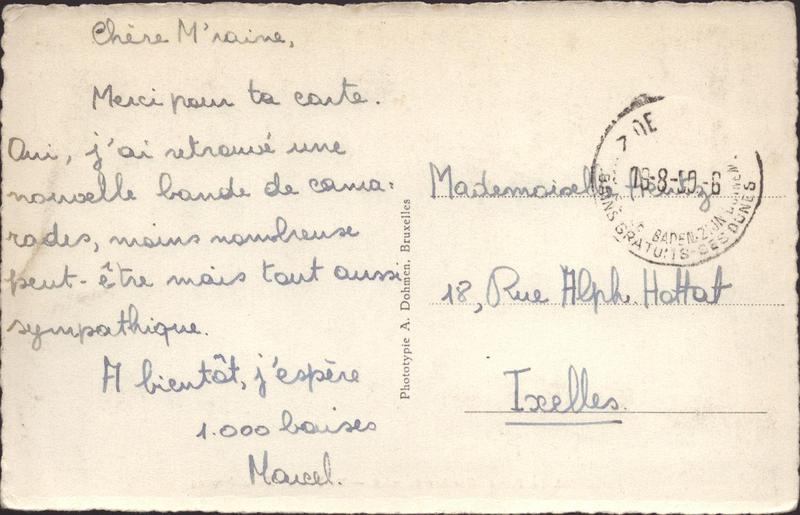 Chère M'raine,
Merci pour ta carte.
Oui, j'ai retrouvé une
nouvelle bande de cama=
rades, moins nombreuse
peut-être mais tout aussi
sympathique.
A bientôt, j'espère
1.000 baises
Marcel.
Phototypie A. Dohmen, Bruxelles
7 DE
8-50-6
BADEN ZIJN
BAINS GRATUITS - SES DUNES
Mademoiselle
18, Rue Alph. Hottat
Ixelles.